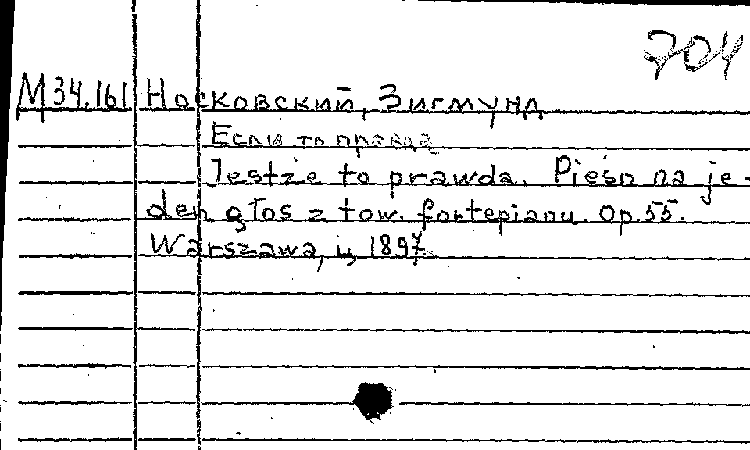 704
М 34.161 Носковский, Зигмунд
Если то правда
Jestże to prawda. Pieśń na je-
den głos z tow. fortepianu. Op.55.
Warszawa, ц. 1897.